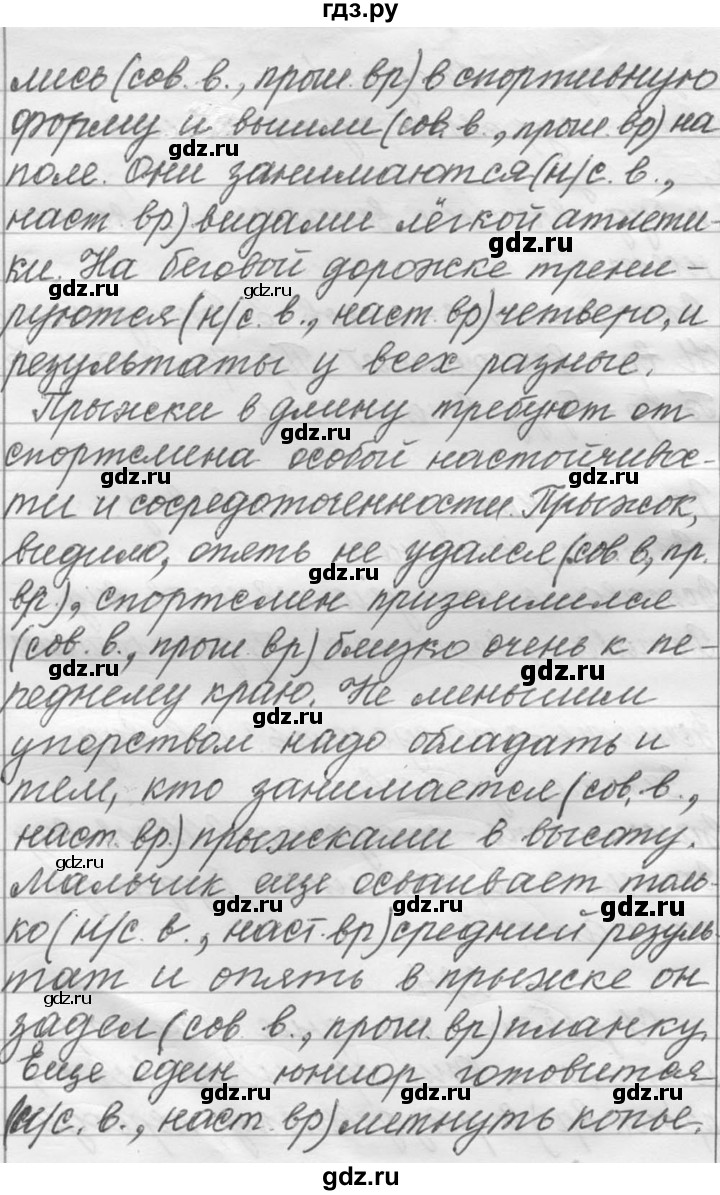 гдз.ру
лись (сов. в., прош. вр) в спортивную
форму и вышли (сов. в., прош. вр) на
gdz.ru
поле. Они занимаются (н/с. в.,
наст. вр) видами лёгкой атлети-
gdz.ru
ки. На беговой дорожке трени-
gdz.ru gdz.ru
руются (н/с. в., наст. вр) четверо, и
результаты у всех разные.
Прыжки в длину требуют от
gdz.ru
спортсмена особой настойчивос-
gdz.ru gdz.ru
ти и сосредоточенности. Прыжок,
видимо, опять не удался (сов. в, пр.
gdz.ru
вр.), спортсмен приземлился
(сов. в., прош. вр) близко очень к пе-
gdz.ru gdz.ru
реднему краю. Не меньшим
gdz.ru
упорством надо обладать и
тем, кто занимается (сов. в.,
наст. вр.) прыжками в высоту.
gdz.ru
Мальчик еще осваивает толь-
gdz.ru gdz.ru gdz.ru
ко (н/с. в., наст. вр) средний резуль-
тат и опять в прыжке он
gdz.ru
задел (сов. в., прош. вр) планку.
Еще один юниор готовится
gdz.ru gdz.ru
(н/с. в., наст. вр) метнуть копье.
gdz.ru